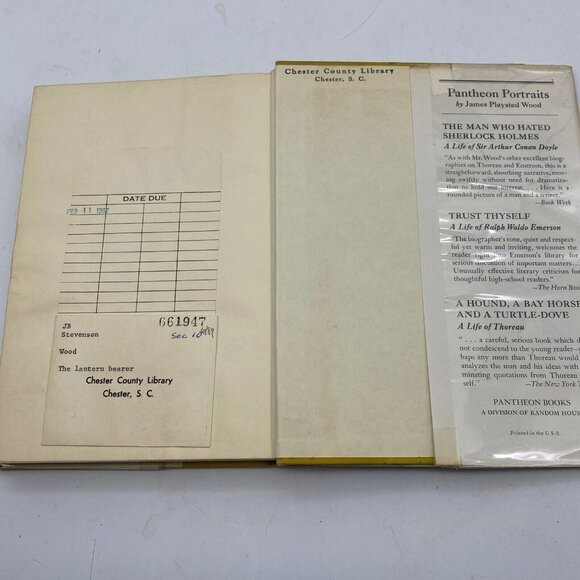 DATE DUE
FEB 11
661947
JB
Stevenson
Sec
Wood
The lantern bearer
Chester County Library
Chester, S. C.
Chester County Library
Chester, S. C.
Pantheon Portraits
by James Playsted Wood
THE MAN WHO HATED
SHERLOCK HOLMES
A Life of Sir Arthur Conan Doyle
"As with Mr. Wood's other excellent biog-
raphies on Thoreau and Emerson, this is a
straightforward, absorbing narrative, mov-
ing swiftly without need for dramatiza-
tion to hold our interest. . . . Here is a
rounded picture of a man and a writer."
—Book Week
TRUST THYSELF
A Life of Ralph Waldo Emerson
The biographer's tone, quiet and respect-
ful yet warm and inviting, welcomes the
reader right into Emerson's library for
serious discussion of important matters. . . .
Unusually effective literary criticism for
thoughtful high-school readers."
—The Horn Book
A HOUND, A BAY HORSE
AND A TURTLE-DOVE
A Life of Thoreau
". . . a careful, serious book which d
not condescend to the young reader—
haps any more than Thoreau would
analyzes the man and his ideas with
minating quotations from Thoreau
self."
—The New York T
PANTHEON BOOKS
A DIVISION OF RANDOM HOUS
Printed in the U.S.A.